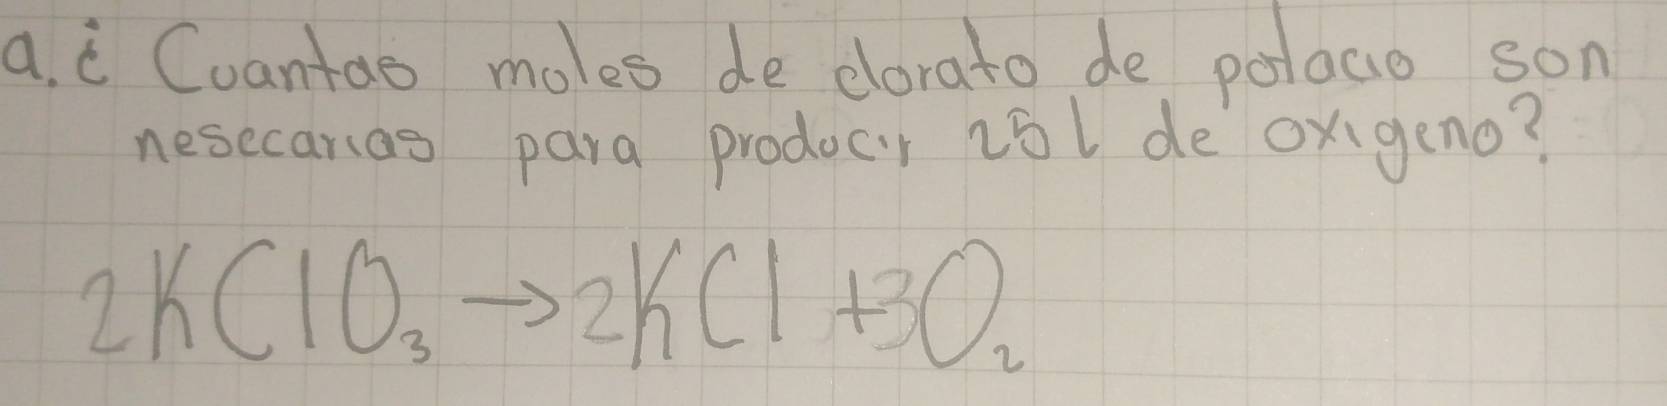 a. ¿ Cuantas moles de clorato de potacio son
nesecarias para producir 25 L de oxigeno?
2KClO₃ → 2KCl + 3O₂